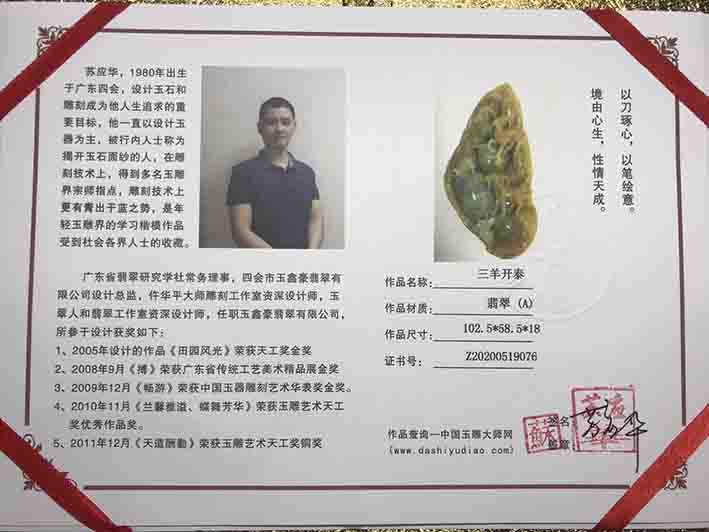 苏应华，1980年出生
于广东四会，设计玉石和
雕刻成为他人生追求的重
要目标，他一直以设计玉
器为主，被行内人士称为
揭开玉石面纱的人，在雕
刻技术上，得到多名玉雕
界宗师指点，雕刻技术上
更有青出于蓝之势，是年
轻玉雕界的学习楷模作品
受到社会各界人士的收藏。
广东省翡翠研究学社常务理事，四会市玉鑫豪翡翠有
限公司设计总监，仵华平大师雕刻工作室资深设计师，玉
翠人和翡翠工作室资深设计师，任职玉鑫豪翡翠有限公司，
所参于设计获奖如下：
1、2005年设计的作品《田园风光》荣获天工奖金奖
2、2008年9月《搏》荣获广东省传统工艺美术精品展金奖
3、2009年12月《畅游》荣获中国玉器雕刻艺术华表奖金奖。
4、2010年11月《兰馨榴溢、蝶舞芳华》荣获玉雕艺术天工
奖优秀作品奖。
5、2011年12月《天道酬勤》荣获玉雕艺术天工奖铜奖
以刀琢心，以笔绘意。
境由心生，性情天成。
作品名称：三羊开泰
作品材质：翡翠（A）
作品尺寸：102.5*58.5*18
证书号：Z20200519076
作品查询—中国玉雕大师网
(www.dashiyudiao.com)
签名